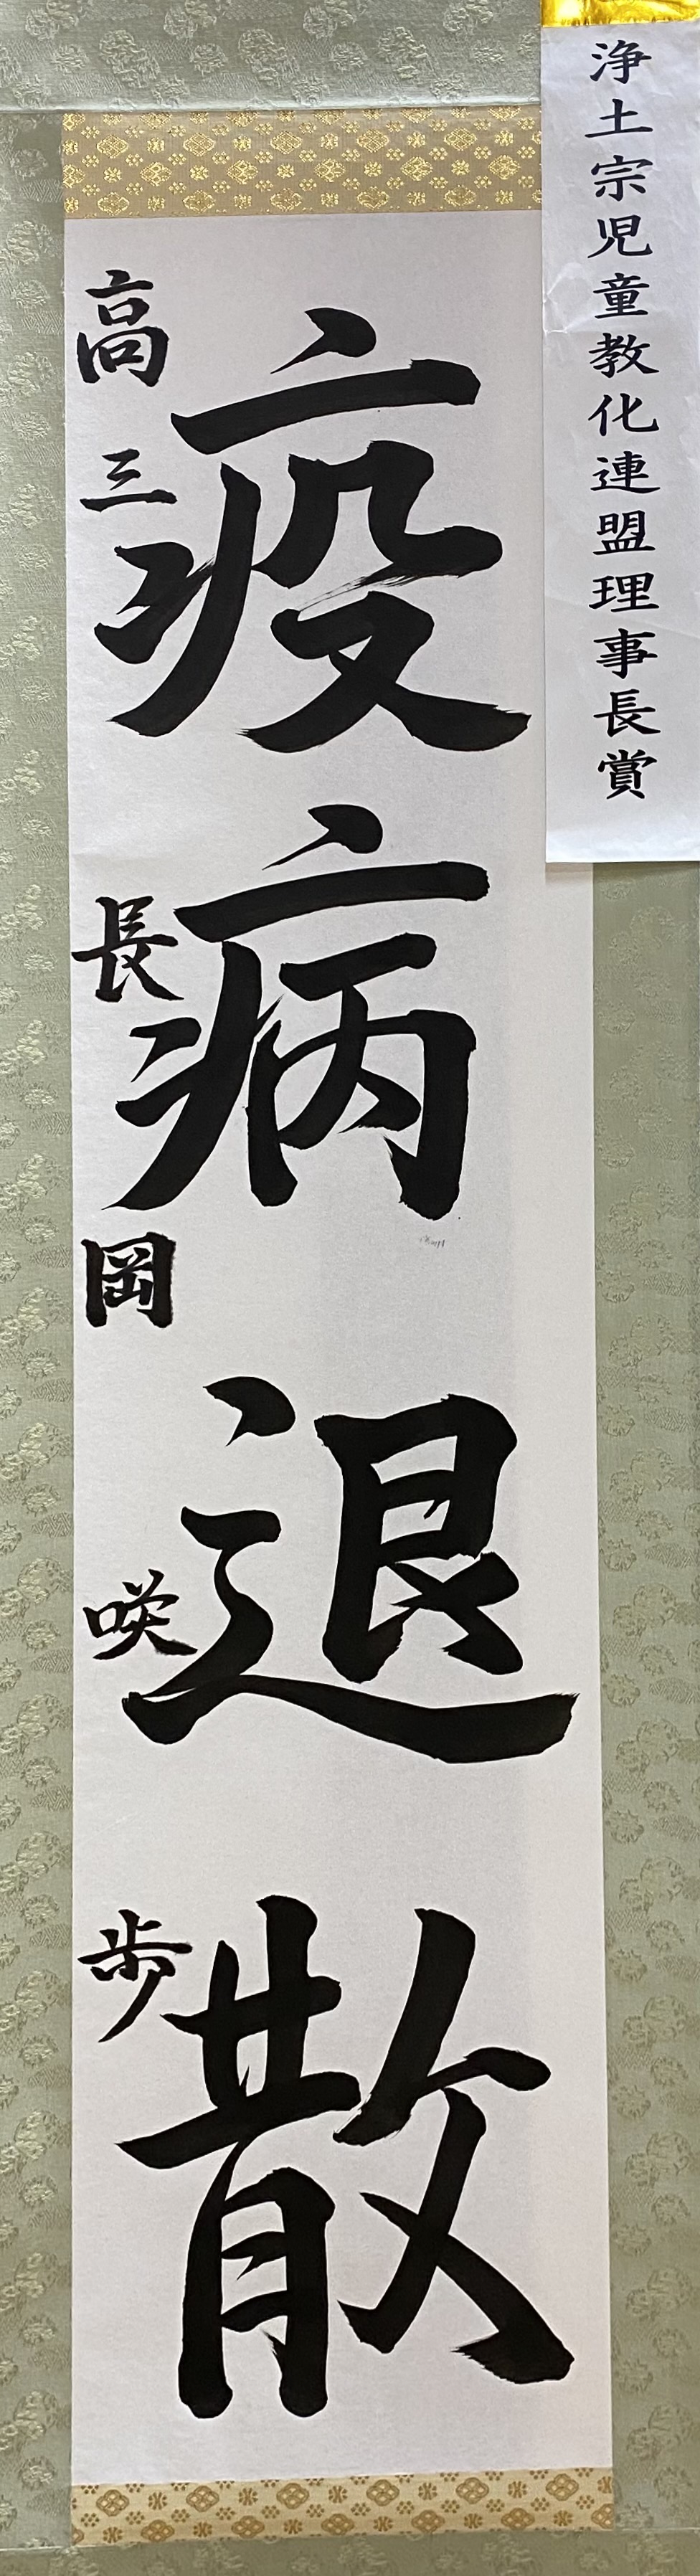 浄土宗児童教化連盟理事長賞
疫病退散
高三 長岡咲歩